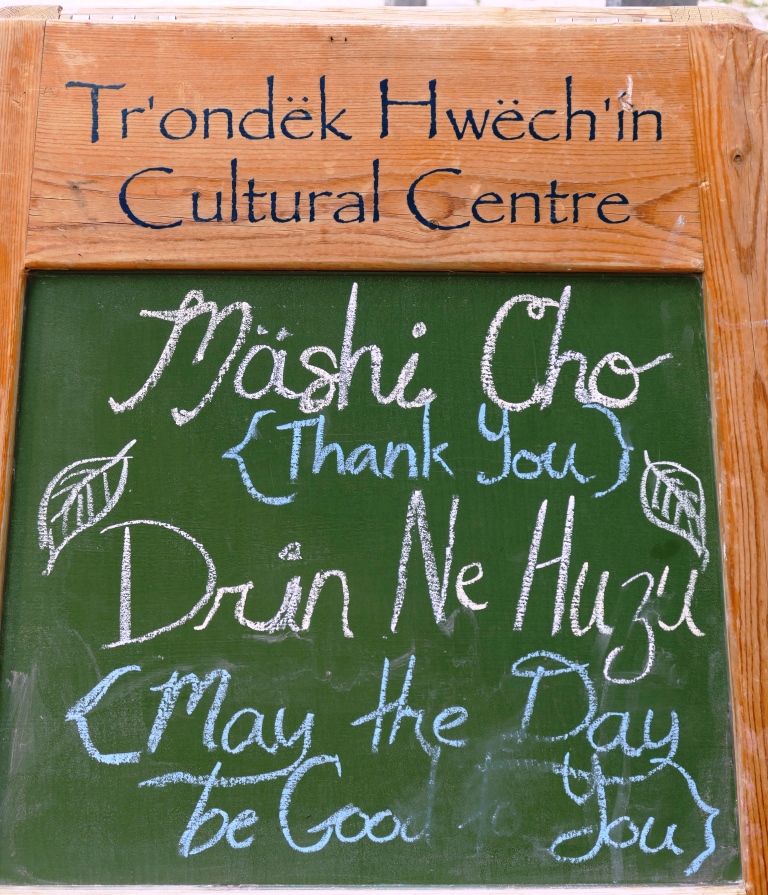 Tr'ondëk Hwëch'in
Cultural Centre
Mäshi Cho
{Thank You}
Drin Ne Huzu
{May the Day
be Good to You}